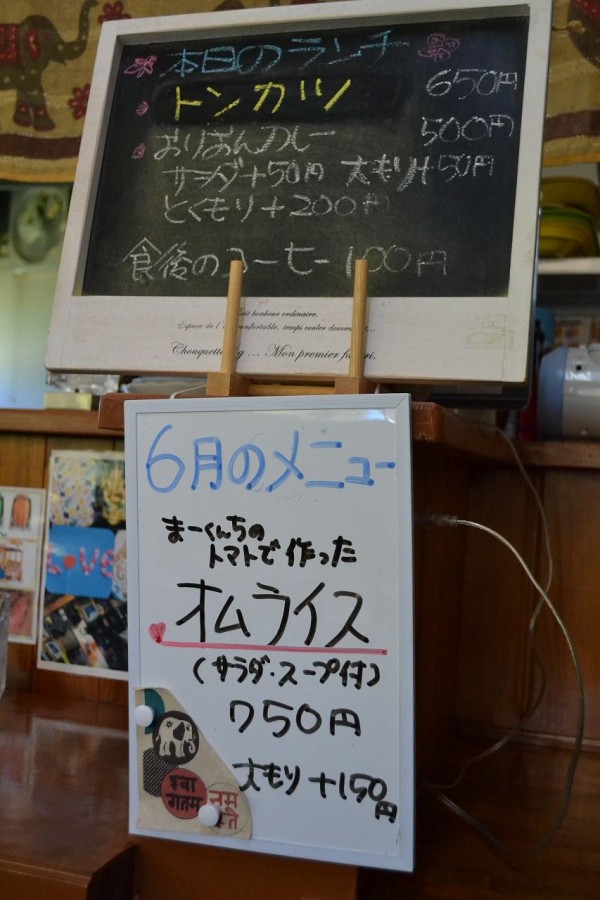 本日のランチ
トンカツ 650円
おりおんカレー 500円
サラダ+50円 大もり+50円
とくもり+200円
食後のコーヒー 100円
Chouquette
... Mon premier
6月のメニュー
まーくんちの
トマトで作った
オムライス
(サラダ・スープ付)
750円
大もり+150円